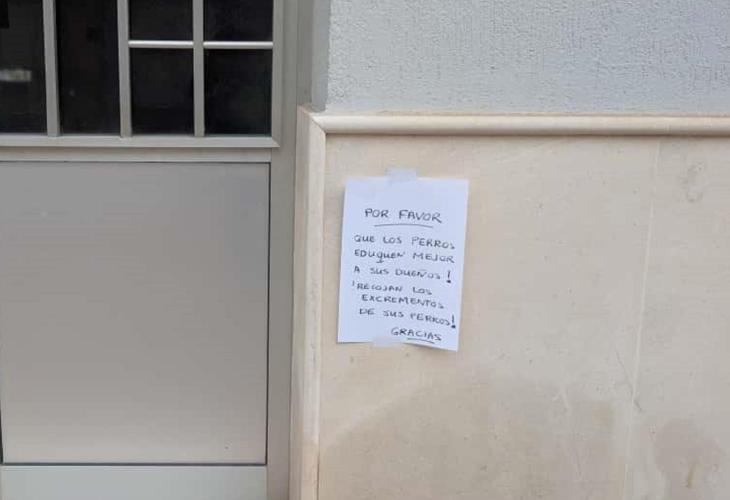 POR FAVOR
QUE LOS PERROS
EDUQUEN MEJOR
A SUS DUEÑOS!
¡RECOJAN LOS
EXCREMENTOS
DE SUS PERROS!
GRACIAS